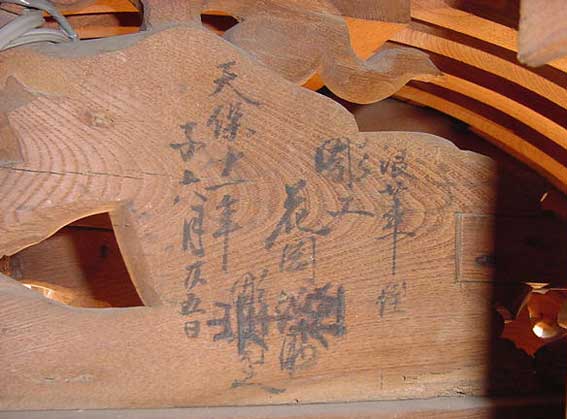 浪華住
彫工
花岡
彫之
天保十一年
子六月廿五日